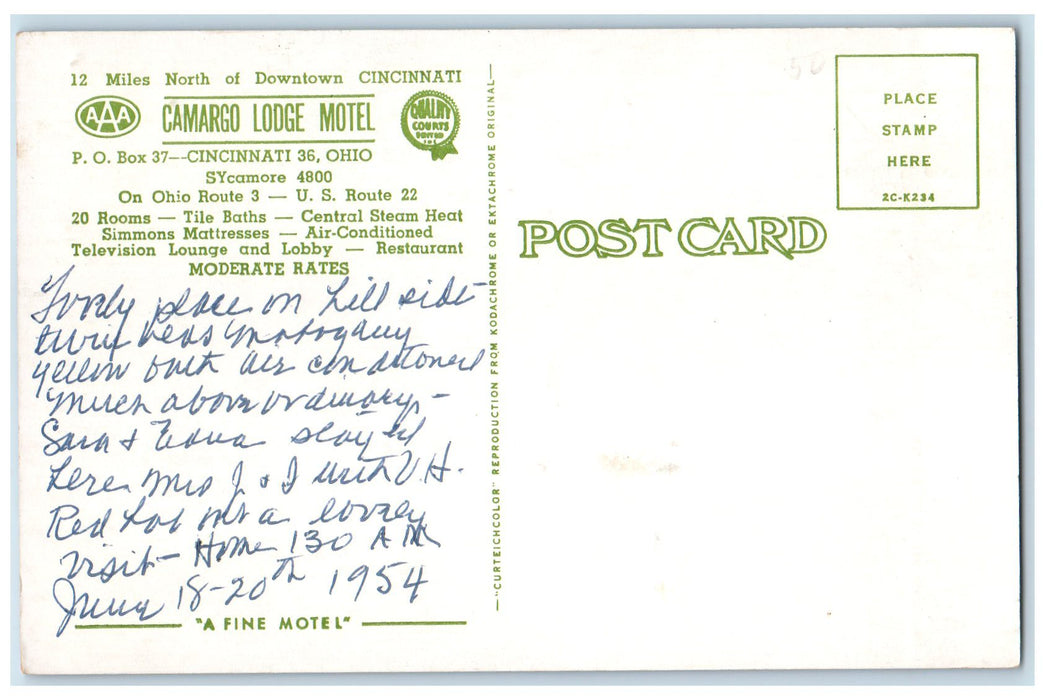 12 Miles North of Downtown CINCINNATI
AAA
CAMARGO LODGE MOTEL
QUALITY
COURTS
UNITED
INC
P. O. Box 37--CINCINNATI 36, OHIO
SYcamore 4800
On Ohio Route 3 — U. S. Route 22
20 Rooms — Tile Baths — Central Steam Heat
Simmons Mattresses — Air-Conditioned
Television Lounge and Lobby — Restaurant
MODERATE RATES
Lovely place on hill side
twin beds Mahogany
yellow bath air conditoned
Much above ordinary -
Sara & Edna stayed
here Mrs J. & I with V. H.
Red hot but a lovely
visit - Home 130 A M
June 18-20th 1954
"A FINE MOTEL"
—"CURTEICHCOLOR" REPRODUCTION FROM KODACHROME OR EKTACHROME ORIGINAL—
POST CARD
50
PLACE
STAMP
HERE
2C-K234